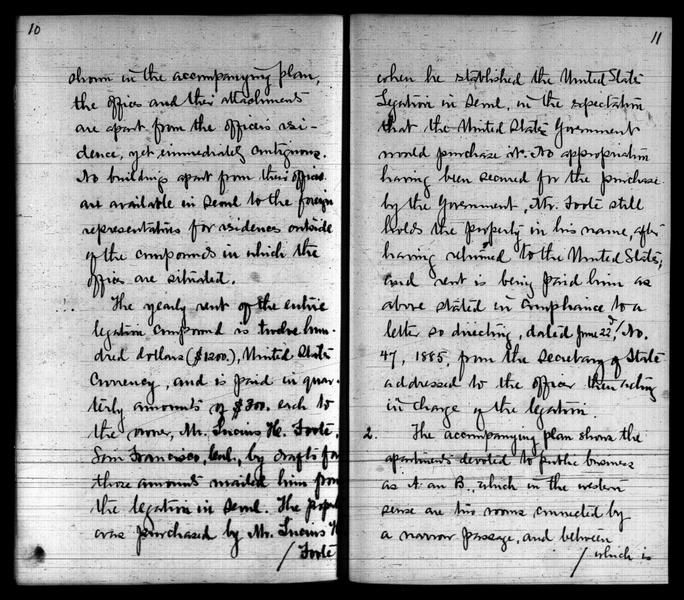 10
shown in the accompanying plan,
the offices and their attachments
are apart from the officers resi-
dence, yet immediately contiguous.
No buildings apart from these offices
are available in Seoul to the foreign
representatives for residences outside
of the compounds in which the
offices are situated.
The yearly rent of the entire
legation compound is twelve hun-
dred dollars ($1200.), United States
Currency, and is paid in quar-
terly amounts of $300. each to
the owner, Mr. Lucius H. Foote,
San Francisco, Cal., by drafts for
those amounts mailed him from
the legation in Seoul. The
was purchased by Mr. Lucius H
/ Foote
11
when he established the United States
Legation in Seoul, in the expectation
that the United States Government
would purchase it. No appropriation
having been secured for the purchase
by the Government, Mr. Foote still
holds the property in his name, after
having returned to the United States;
and rent is being paid him as
above stated in compliance to a
letter so directing, dated June 22d, / No.
47, 1885, from the Secretary of State
addressed to the officer then acting
in charge of the legation.
2. The accompanying plan shows the
apartments devoted to public business
as A an B., which in the western
sense are two rooms connected by
a narrow passage, and between
/ which is